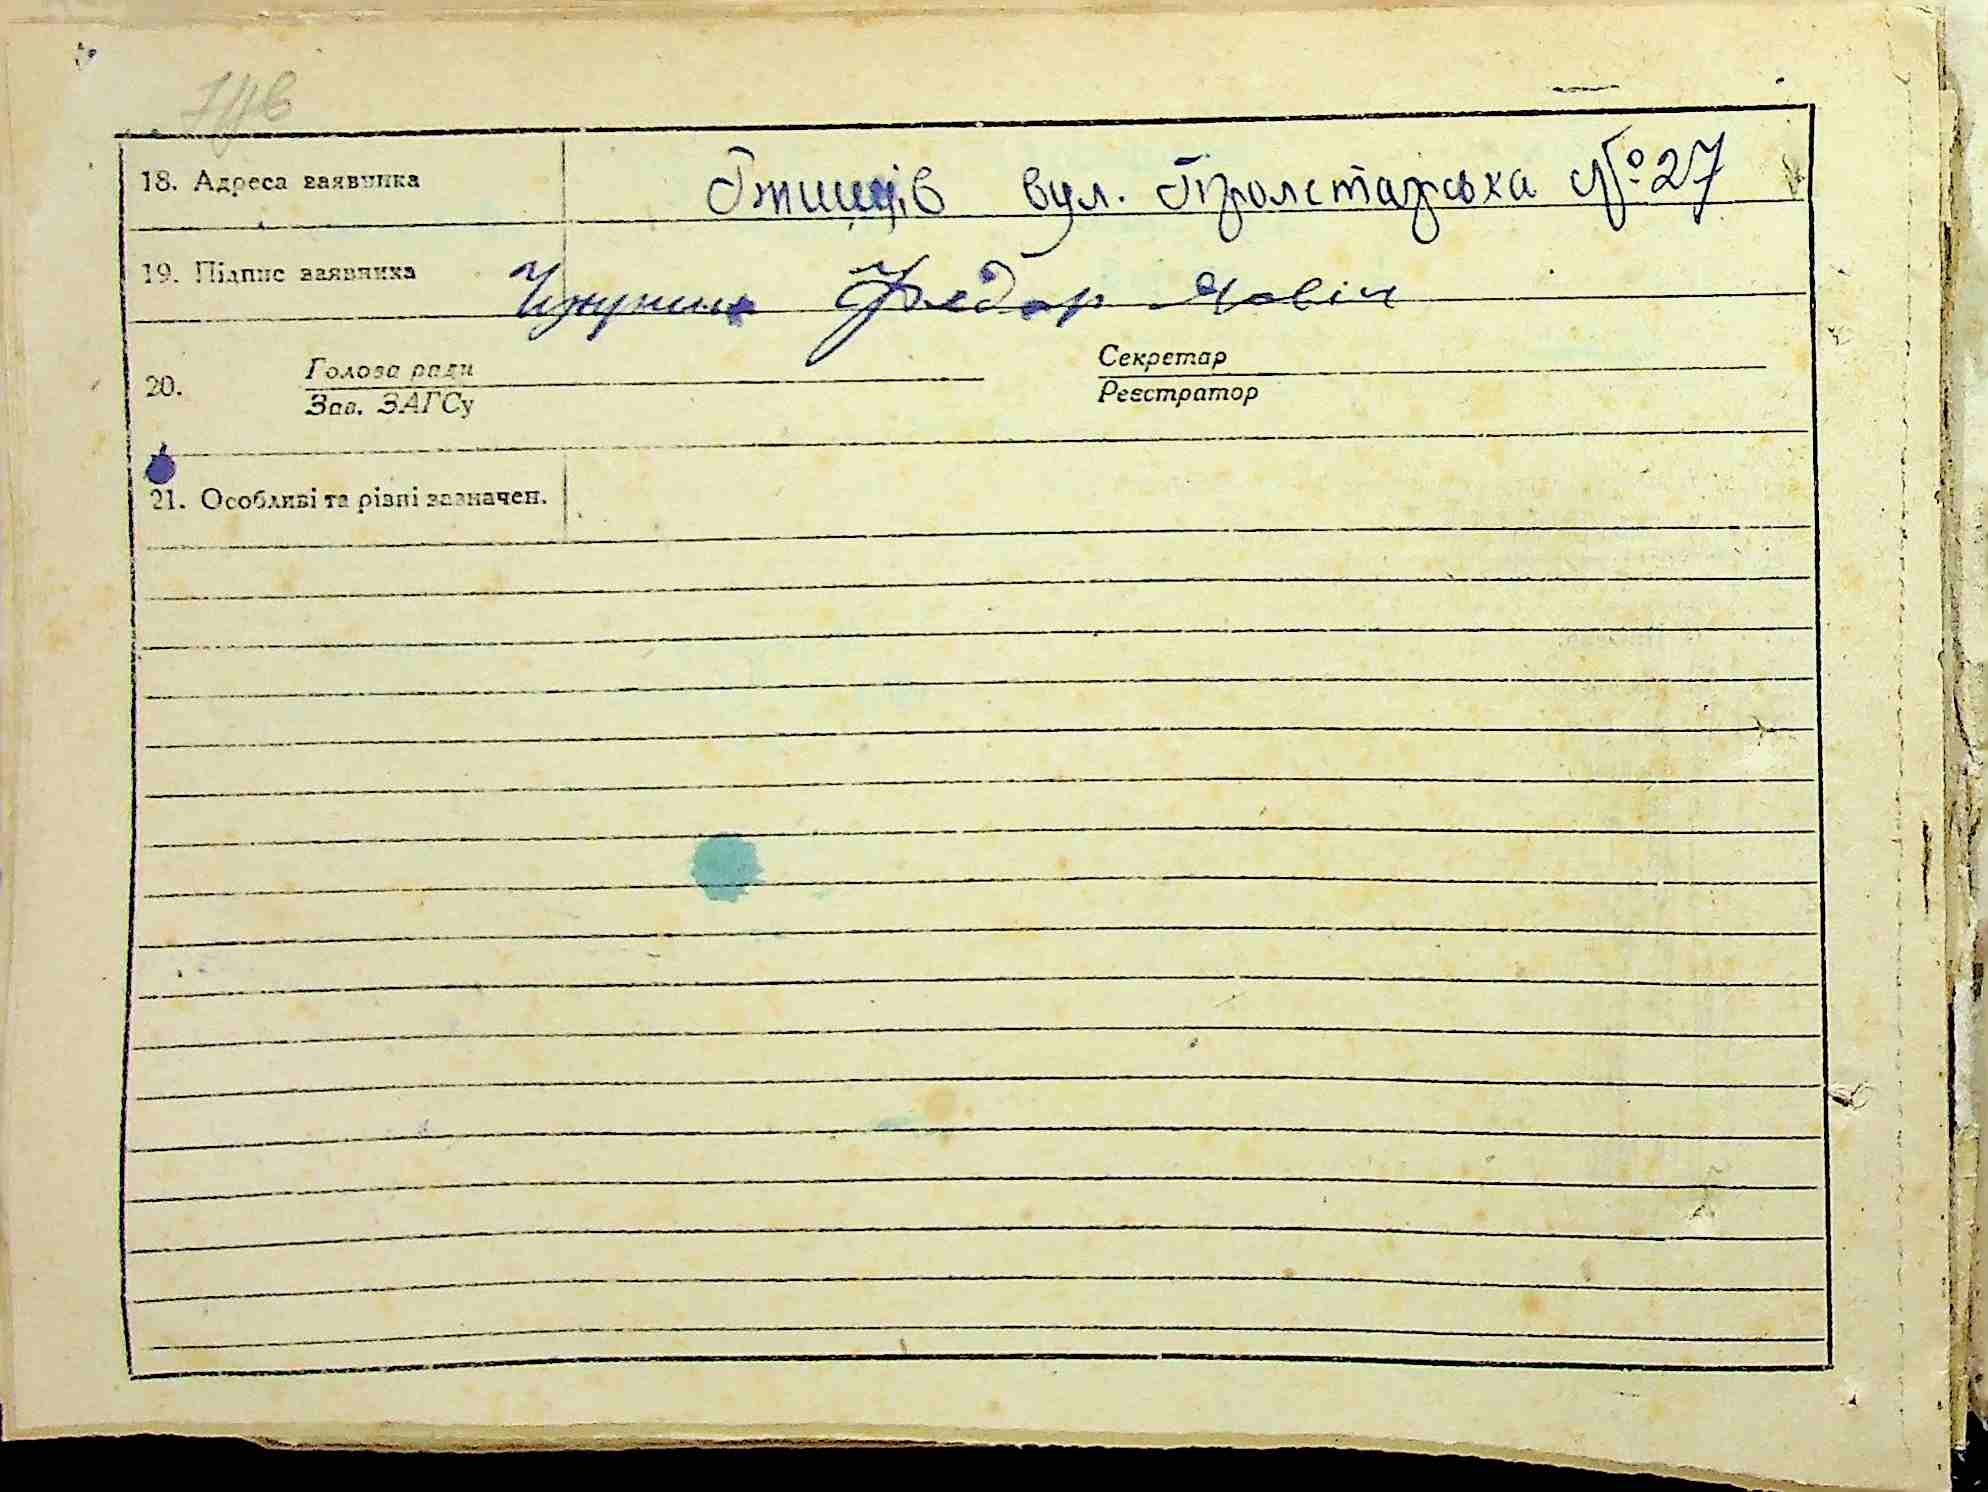 18. Адреса заявника Ржищів вул. Пролетарська № 27
19. Підпис заявника Федор
20. Голова ради Секретар
Зав. ЗАГСу Реєстратор
21. Особливі та різні зазначен.